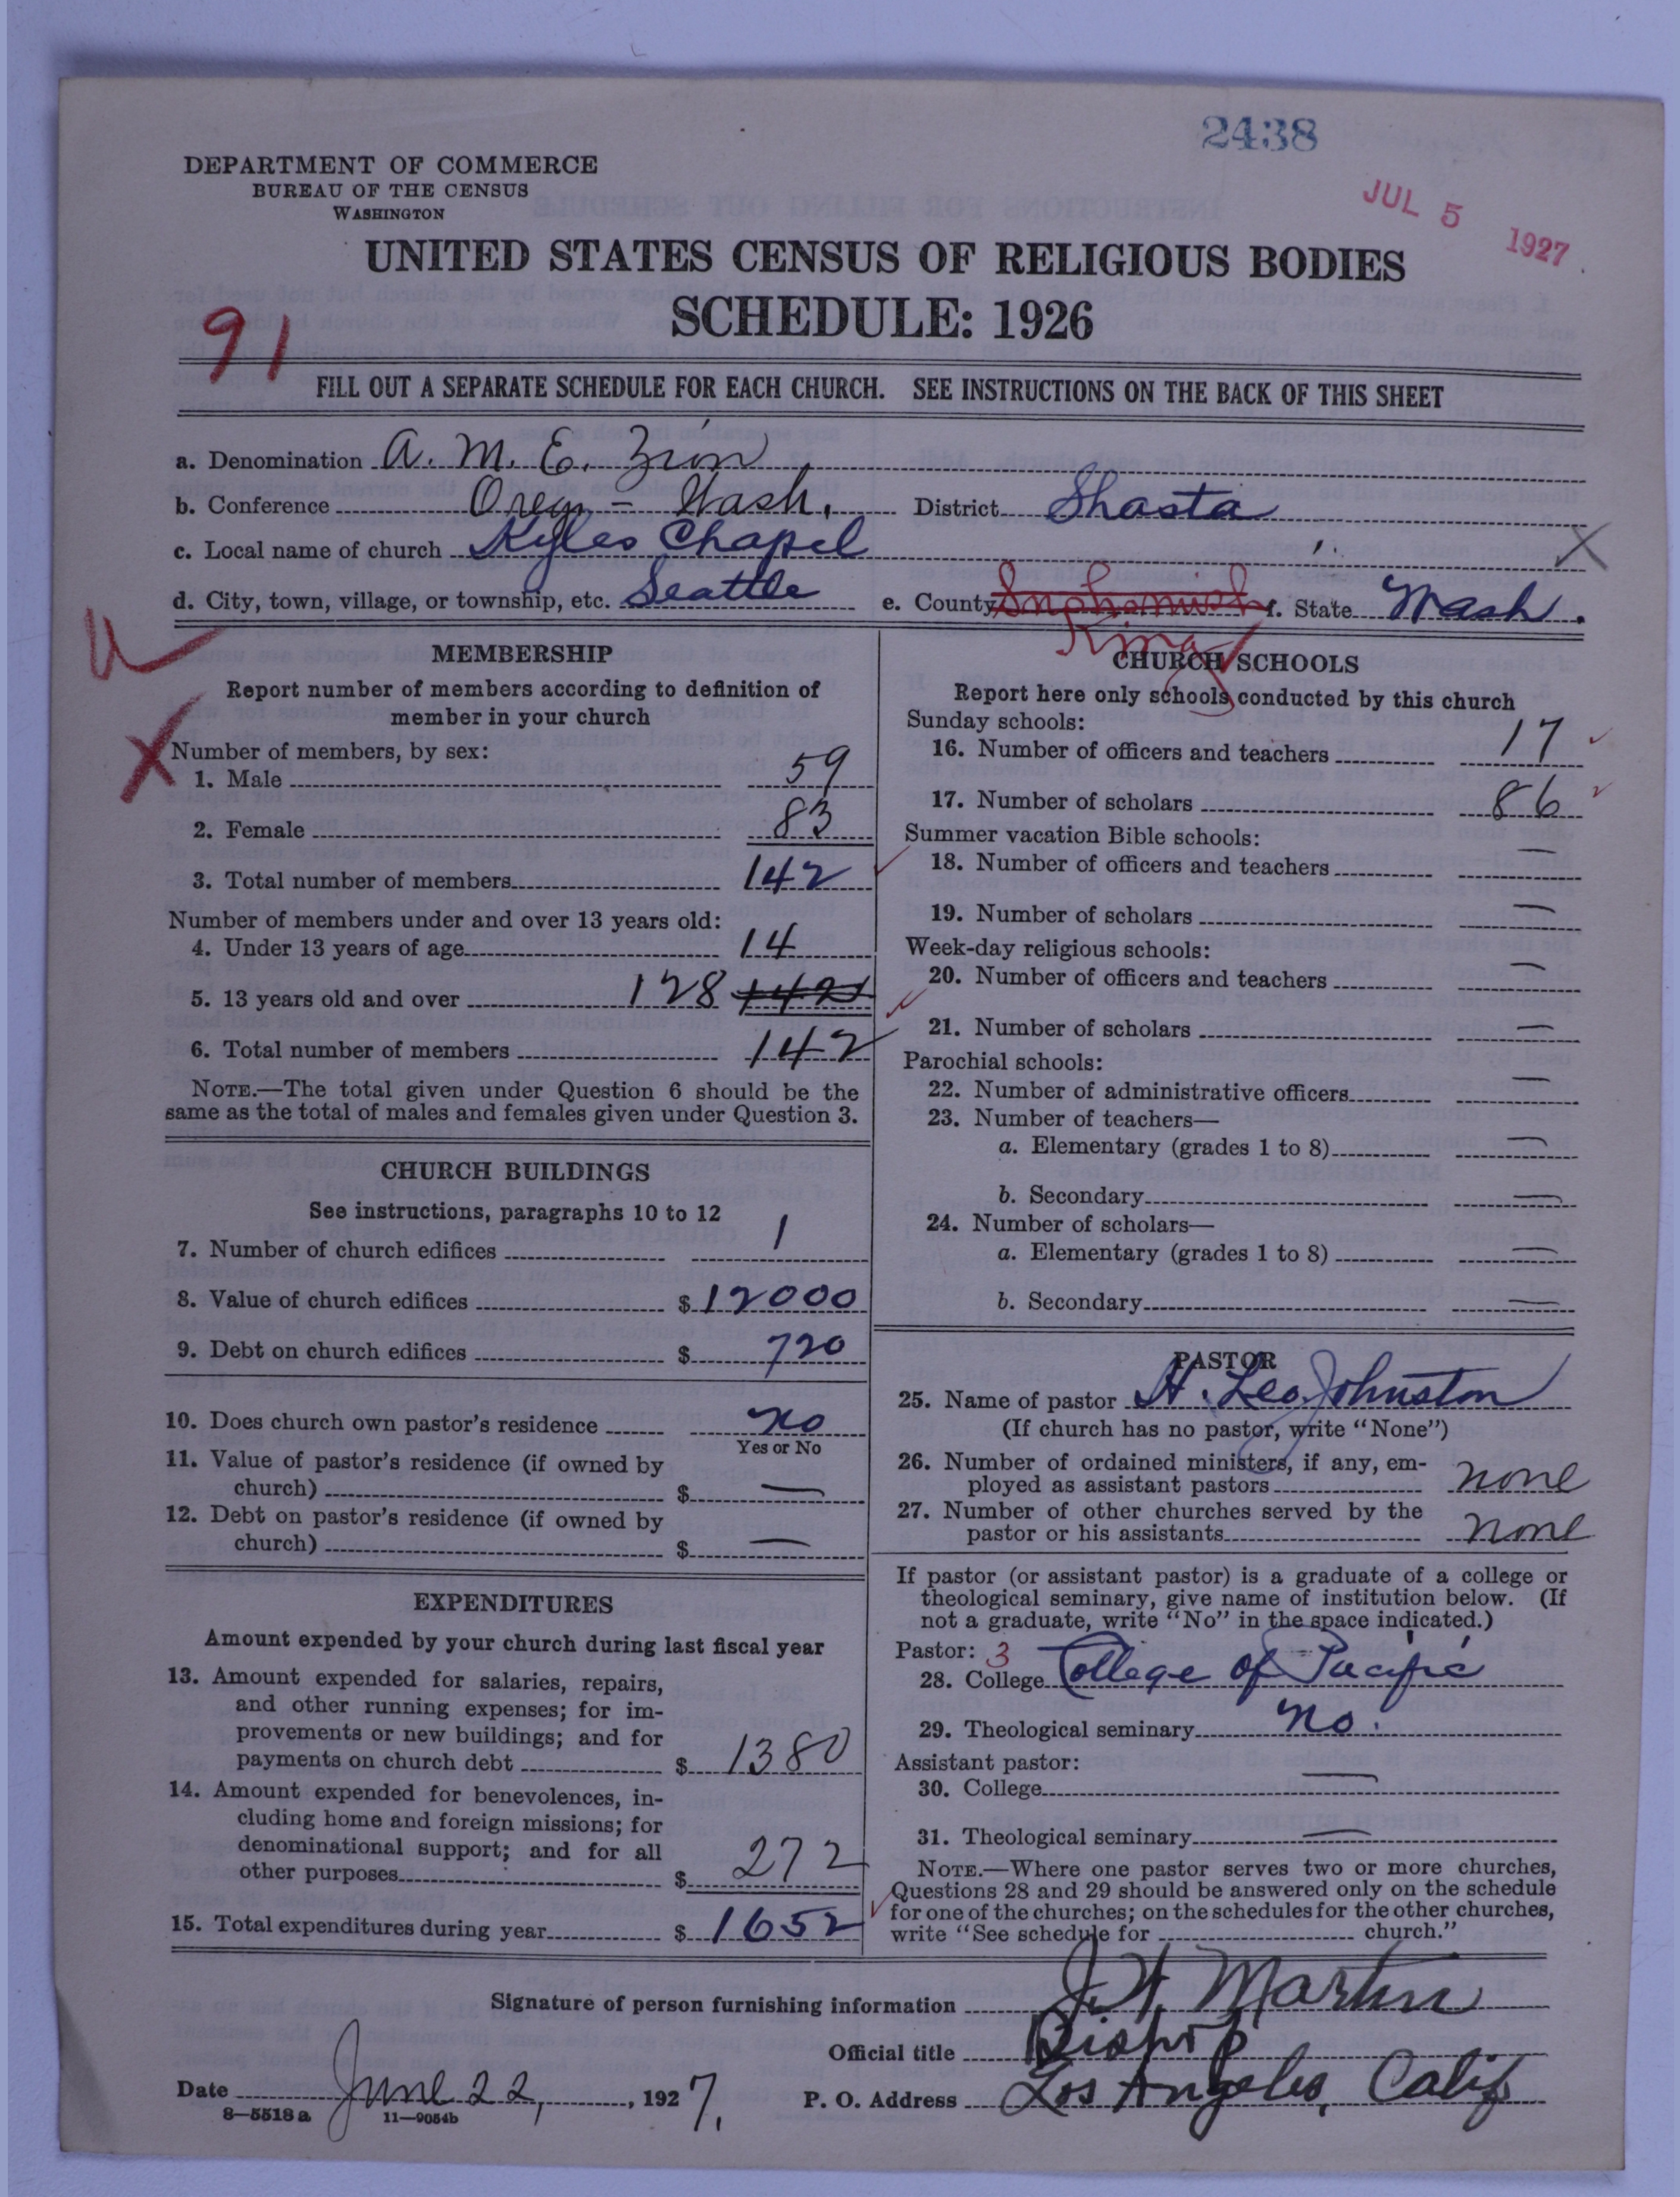 2438
JUL 5 1927
DEPARTMENT OF COMMERCE
BUREAU OF THE CENSUS
WASHINGTON
UNITED STATES CENSUS OF RELIGIOUS BODIES
SCHEDULE: 1926
91
FILL OUT A SEPARATE SCHEDULE FOR EACH CHURCH. SEE INSTRUCTIONS ON THE BACK OF THIS SHEET
a. Denomination A. M. E. Zion
b. Conference Oreg. - Wash. District Shasta
c. Local name of church Kyles Chapel
d. City, town, village, or township, etc. Seattle e. County King f. State Wash.
MEMBERSHIP
Report number of members according to definition of
member in your church
Number of members, by sex:
1. Male 59
2. Female 83
3. Total number of members 142
Number of members under and over 13 years old:
4. Under 13 years of age 14
5. 13 years old and over 128 142
6. Total number of members 142
NOTE.—The total given under Question 6 should be the
same as the total of males and females given under Question 3.
CHURCH BUILDINGS
See instructions, paragraphs 10 to 12
7. Number of church edifices 1
8. Value of church edifices $ 12000
9. Debt on church edifices $ 720
10. Does church own pastor's residence no
Yes or No
11. Value of pastor's residence (if owned by
church) $ —
12. Debt on pastor's residence (if owned by
church) $ —
EXPENDITURES
Amount expended by your church during last fiscal year
13. Amount expended for salaries, repairs,
and other running expenses; for im-
provements or new buildings; and for
payments on church debt $ 1380
14. Amount expended for benevolences, in-
cluding home and foreign missions; for
denominational support; and for all
other purposes $ 272
15. Total expenditures during year $ 1652
CHURCH SCHOOLS
Report here only schools conducted by this church
Sunday schools:
16. Number of officers and teachers 17
17. Number of scholars 86
Summer vacation Bible schools:
18. Number of officers and teachers —
19. Number of scholars —
Week-day religious schools:
20. Number of officers and teachers —
21. Number of scholars —
Parochial schools:
22. Number of administrative officers —
23. Number of teachers—
a. Elementary (grades 1 to 8) —
b. Secondary —
24. Number of scholars—
a. Elementary (grades 1 to 8) —
b. Secondary —
PASTOR
25. Name of pastor H. Leo Johnston
(If church has no pastor, write "None")
26. Number of ordained ministers, if any, em-
ployed as assistant pastors none
27. Number of other churches served by the
pastor or his assistants none
If pastor (or assistant pastor) is a graduate of a college or
theological seminary, give name of institution below. (If
not a graduate, write "No" in the space indicated.)
Pastor: 3
28. College College of Pacific
29. Theological seminary no.
Assistant pastor:
30. College —
31. Theological seminary —
NOTE.—Where one pastor serves two or more churches,
Questions 28 and 29 should be answered only on the schedule
for one of the churches; on the schedules for the other churches,
write "See schedule for church."
Signature of person furnishing information J. W. Martin
Official title Bishop
Date June 22, 1927. P. O. Address Los Angeles, Calif
8—5518a 11—9054b